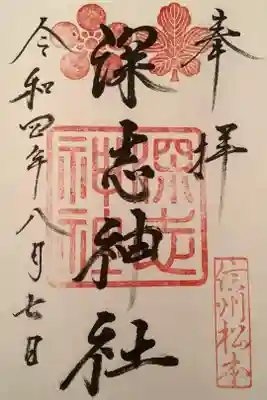 奉拝
深志神社
深志神社
信州松本
令和四年八月七日